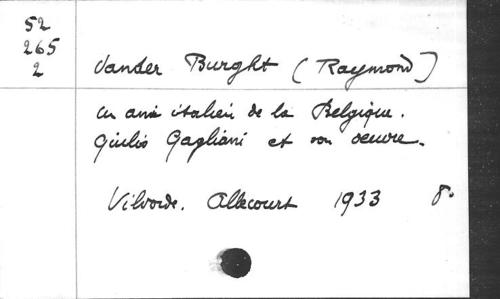 52
265
2
Vander Burght (Raymond)
Un ami italien de la Belgique.
Giulio Gagliani et son oeuvre.
Vilvorde. Allecourt 1933 8°